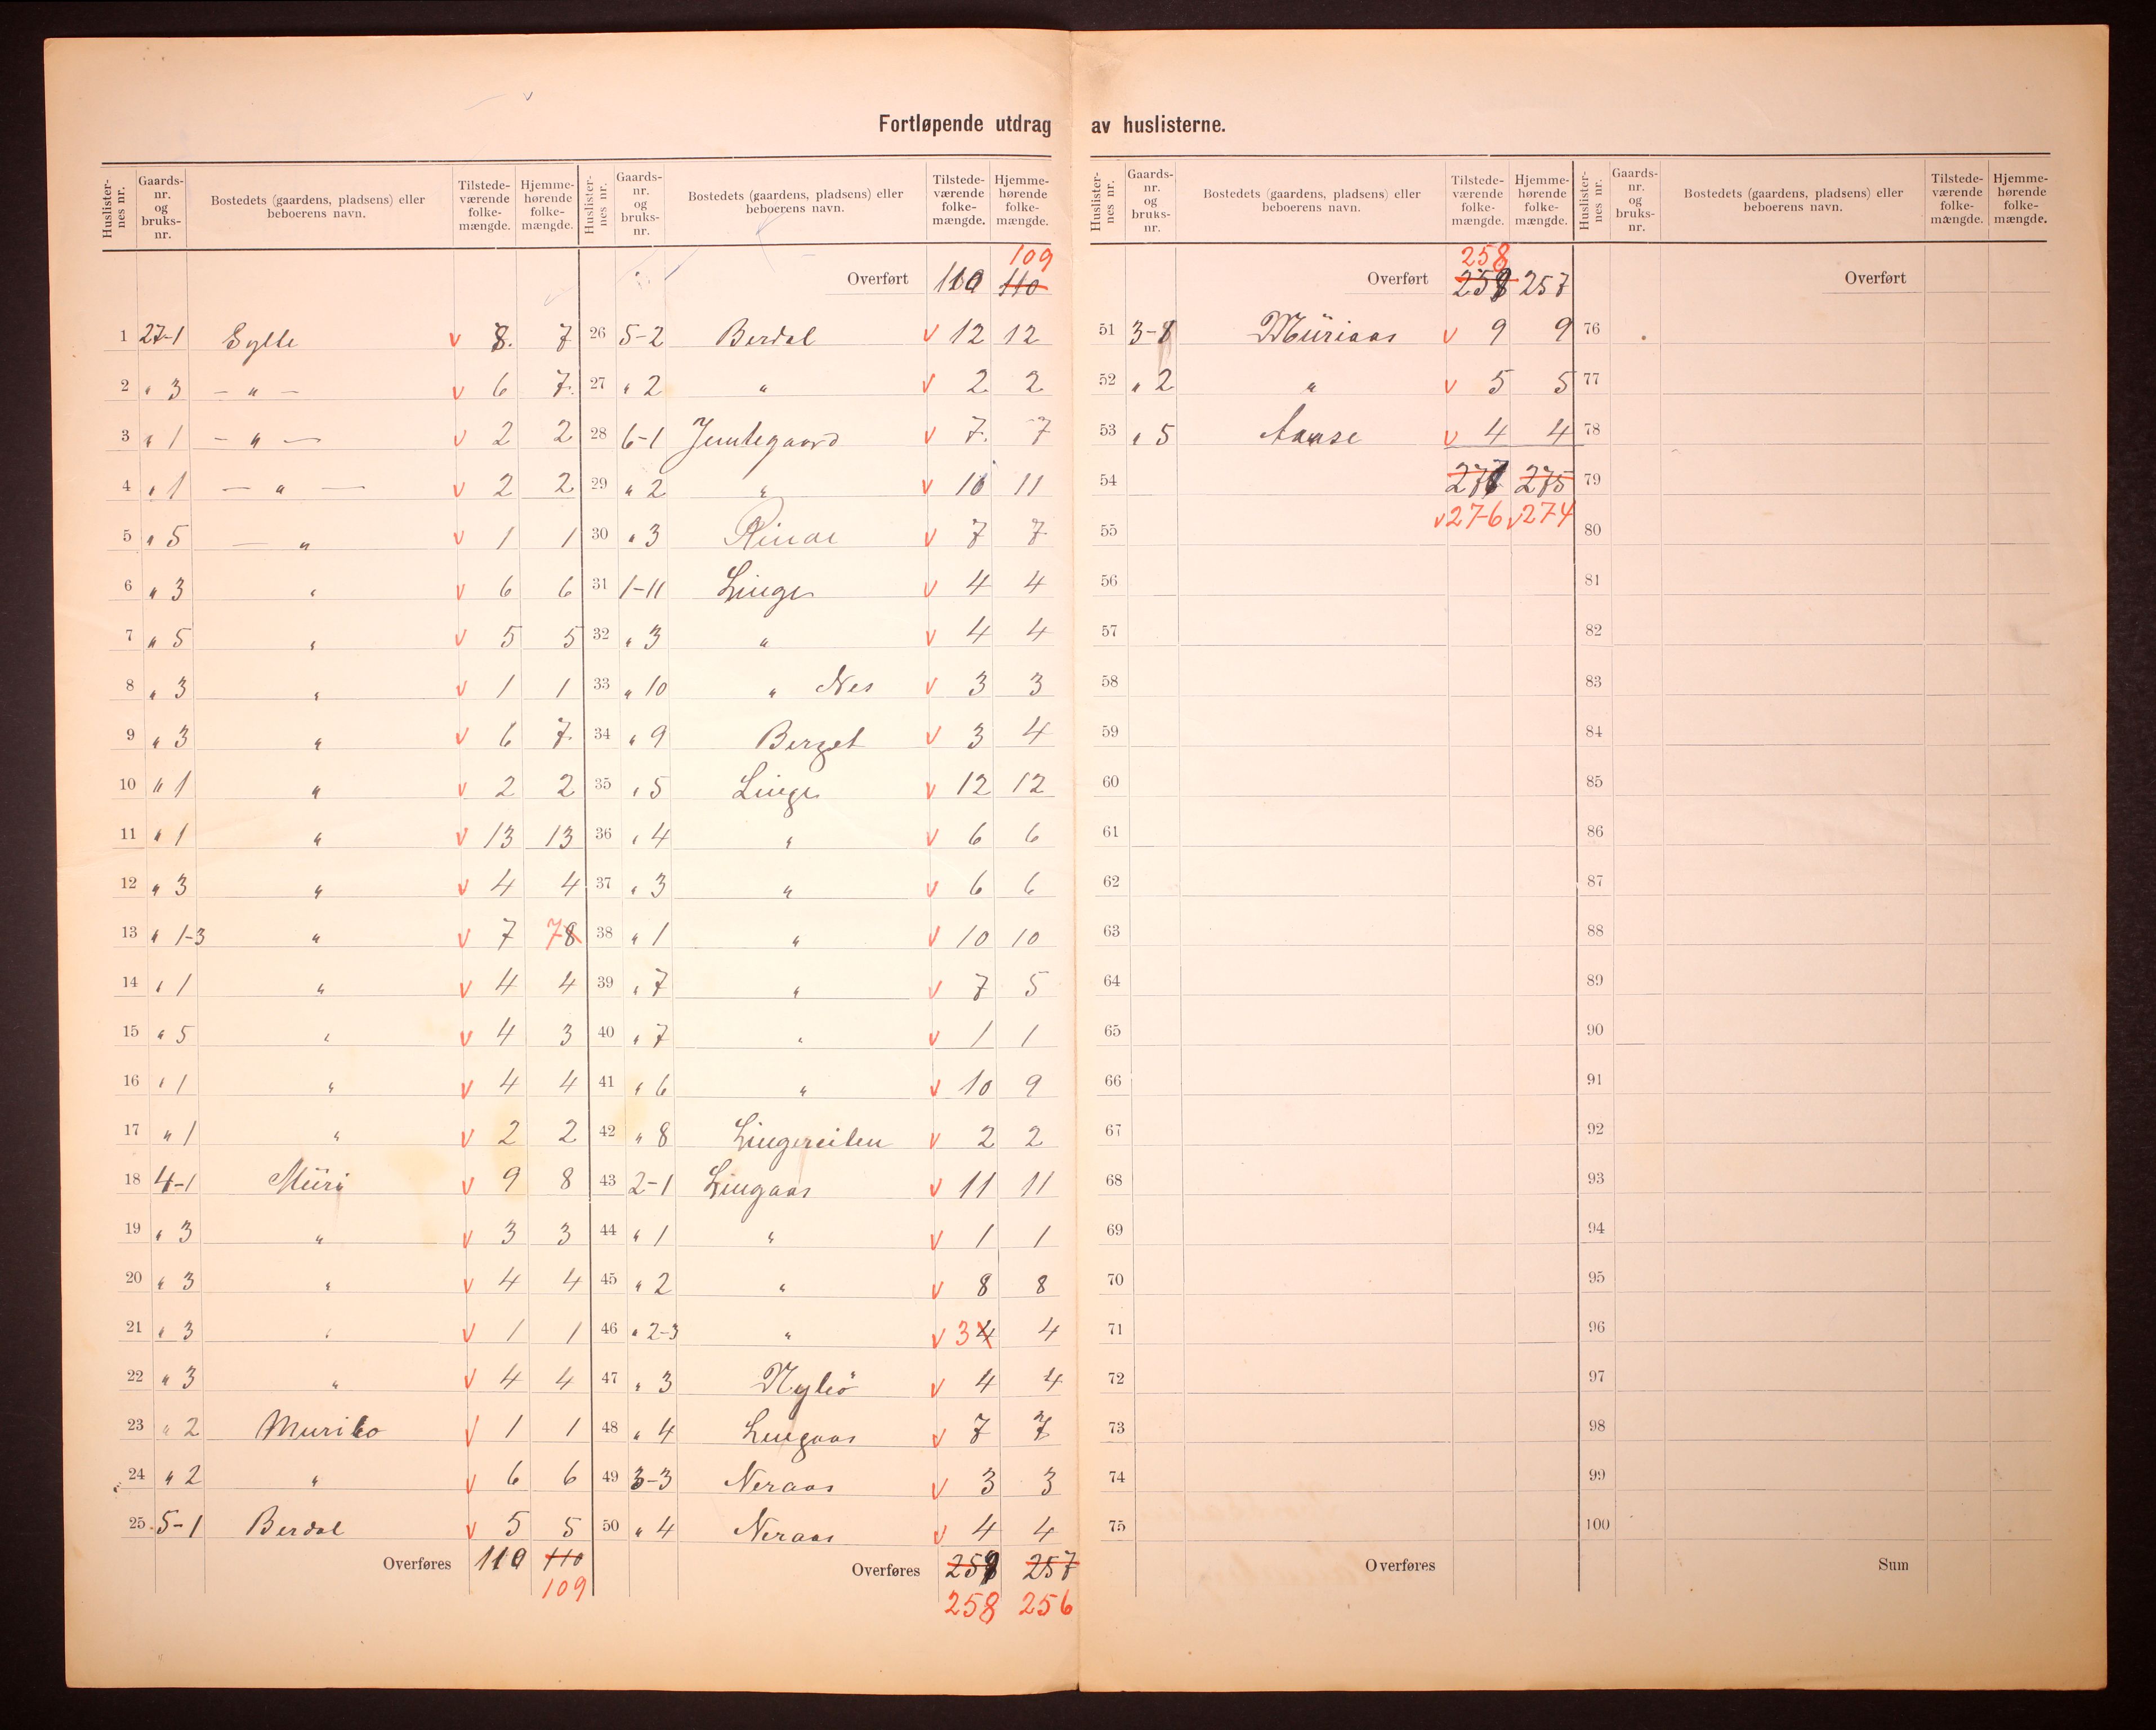 Fortløpende utdrag av huslisterne.
Huslister-nes nr. Gaards-nr. og bruks-nr. Bostedets (gaardens, pladsens) eller beboerens navn. Tilstede-værende folke-mængde. Hjemme-hørende folke-mængde.
1 27-1 Sylte v 8. 7
2 " 3 — " — v 6 7.
3 " 1 — " — v 2 2
4 " 1 — " — v 2 2
5 " 5 — " v 1 1
6 " 3 " v 6 6
7 " 5 " v 5 5
8 " 3 " v 1 1
9 " 3 " v 6 7.
10 " 1 " v 2 2
11 " 1 " v 13 13
12 " 3 " v 4 4
13 " 1-3 " v 7 7 8
14 " 1 " v 4 4
15 " 5 " v 4 3
16 " 1 " v 4 4
17 " 1 " v 2 2
18 4-1 Müri v 9 8
19 " 3 " v 3 3
20 " 3 " v 4 4
21 " 3 " v 1 1
22 " 3 " v 4 4
23 " 2 Muribo v 1 1
24 " 2 " v 6 6
25 5-1 Berdal v 5 5
Overføres 110 110
109
Huslister-nes nr. Gaards-nr. og bruks-nr. Bostedets (gaardens, pladsens) eller beboerens navn. Tilstede-værende folke-mængde. Hjemme-hørende folke-mængde.
109
Overført 110 110
26 5-2 Berdal v 12 12
27 " 2 " v 2 2
28 6-1 Jemtegaard v 7. 7
29 " 2 " v 11
30 " 3 v 7 7
31 1-11 Linge v 4 4
32 " 3 " v 4 4
33 " 10 " Nes v 3 3
34 " 9 Berget v 3 4
35 " 5 Linge v 12 12
36 " 4 " v 6 6
37 " 3 " v 6 6
38 " 1 " v 10 10
39 " 7 " v 7 5
40 " 7 " v 1 1
41 " 6 " v 10 9
42 " 8 v 2 2
43 2-1 Lingaas v 11 11
44 " 1 " v 1 1
45 " 2 " v 8 8
46 " 2-3 " v 3 4 4
47 " 3 v 4 4
48 " 4 Lingaas v 7 7
49 3-3 Neraas v 3 3
50 " 4 Neraas v 4 4
Overføres 259 257
258 256
Huslister-nes nr. Gaards-nr. og bruks-nr. Bostedets (gaardens, pladsens) eller beboerens navn. Tilstede-værende folke-mængde. Hjemme-hørende folke-mængde.
258
Overført 259 257
51 3-8 Müriaas v 9 9
52 " 2 " v 5 5
53 " 5 Aaase v 4 4
54 277 275
55 v 276 v 274
56
57
58
59
60
61
62
63
64
65
66
67
68
69
70
71
72
73
74
75
Overføres
Huslister-nes nr. Gaards-nr. og bruks-nr. Bostedets (gaardens, pladsens) eller beboerens navn. Tilstede-værende folke-mængde. Hjemme-hørende folke-mængde.
Overført
76
77
78
79
80
81
82
83
84
85
86
87
88
89
90
91
92
93
94
95
96
97
98
99
100
Sum